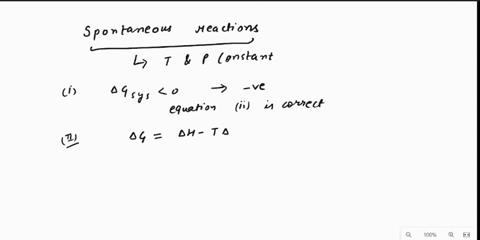 Spontaneous reactions
↳ T & P Constant
(i) ΔG sys < 0 → -ve
equation (ii) is correct
(II) ΔG = ΔH - TΔ
100%